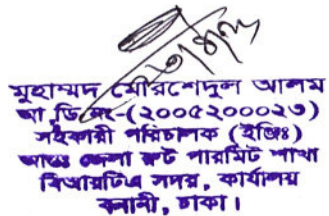 মুহাম্মদ মোরশেদুল আলম
আ,ডি নং-(২০০৫২০০০২৩)
সহকারী পরিচালক (ইঞ্জিঃ)
আন্তঃ জেলা রুট পারমিট শাখা
বিআরটিএ সদর, কার্যালয়
বনানী, ঢাকা।